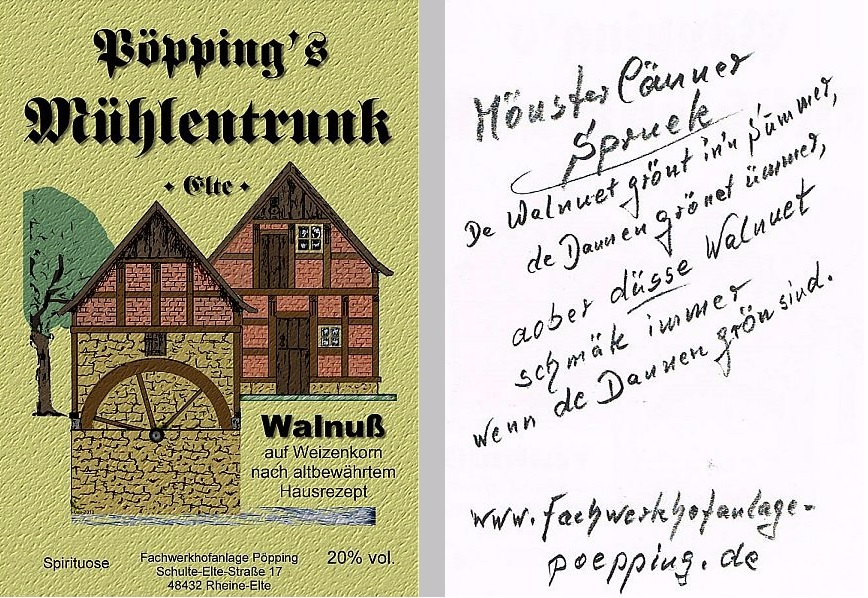 Pöpping's
Mühlentrunk
• Elte •
Walnuß
auf Weizenkorn
nach altbewährtem
Hausrezept
Spirituose
Fachwerkhofanlage Pöpping
Schulte-Elte-Straße 17
48432 Rheine-Elte
20% vol.
Mönster Länner
Spruek
De Walnuet grönt in'n Summer,
de Dannen grönet ümmer,
aober düsse Walnuet
schmäk immer
wenn de Dannen grön sind.
www.fachwerkhofanlage-
poepping.de